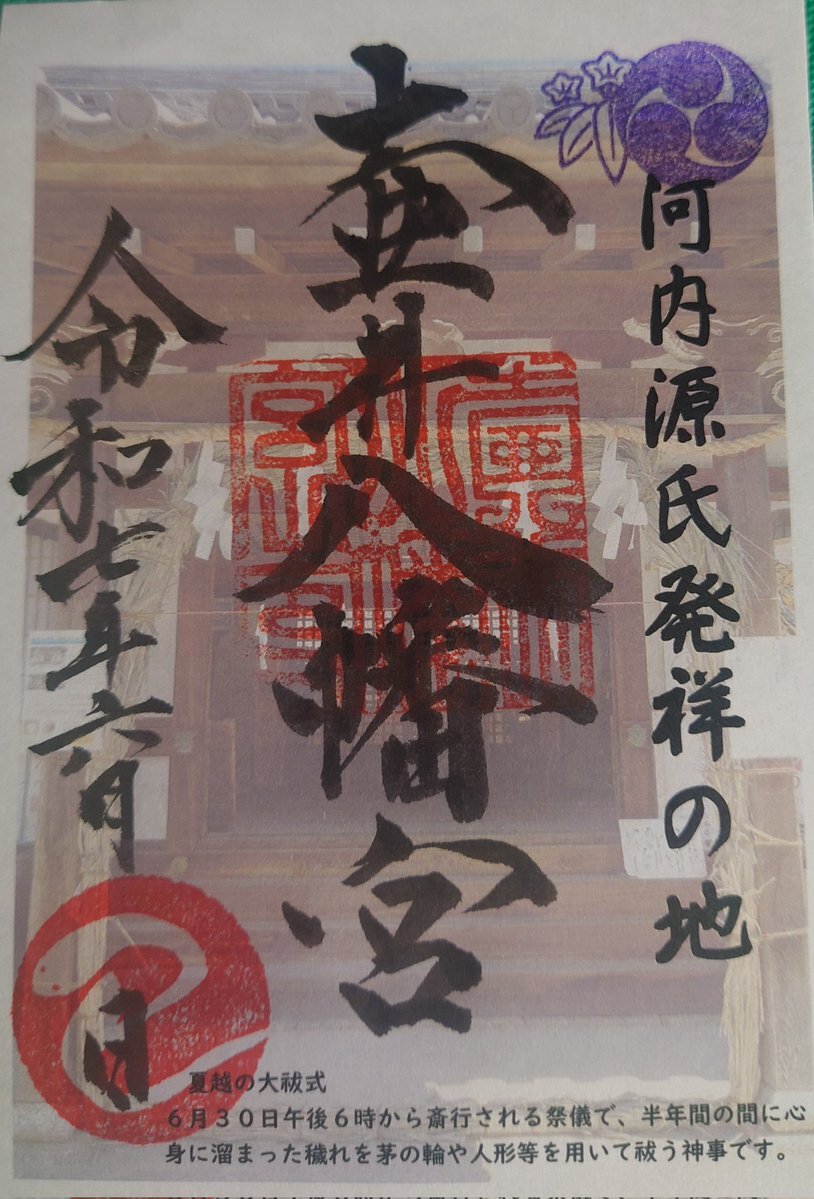 河内源氏発祥の地
壷井八幡宮
令和七年六月
日
夏越の大祓式
６月３０日午後６時から斎行される祭儀で、半年間の間に心
身に溜まった穢れを茅の輪や人形等を用いて祓う神事です。